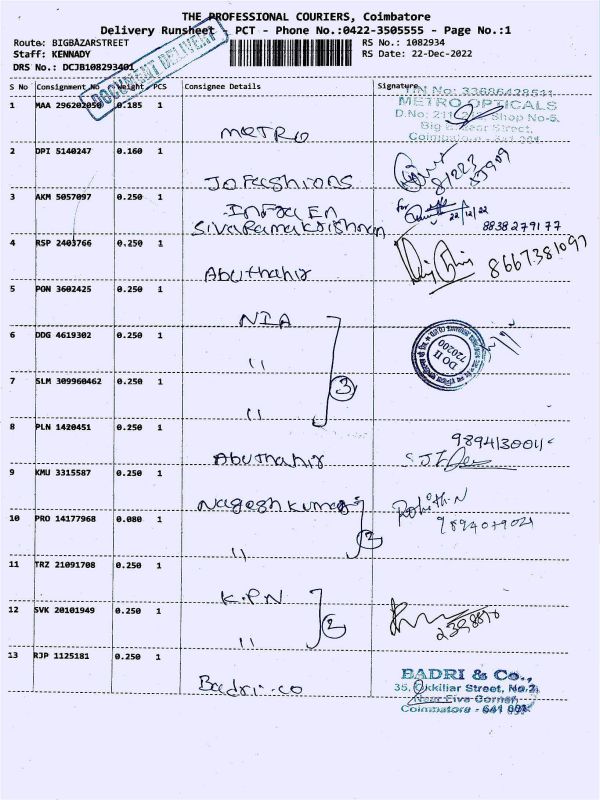 THE PROFESSIONAL COURIERS, Coimbatore
Delivery Runsheet - PCT - Phone No.:0422-3505555 - Page No.:1
Route: BIGBAZARSTREET RS No.: 1082934
Staff: KENNADY RS Date: 22-Dec-2022
DRS No.: DCJB108293401
DOCUMENT DELIVERY
S No Consignment No Weight PCS Consignee Details Signature
TIN No: 33686428511
1 MAA 296202050 0.185 1 METRO OPTICALS
D.No: Shop No-5,
Metro Street,
Coimbatore
2 DPI 5140247 0.160 1
Jo Fashions
3 AKM 5057097 0.250 1 Infra En for 22/12/22
Sivaramakrishnan 8838279177
4 RSP 2403766 0.250 1
Abuthahir 8667381097
5 PON 3602425 0.250 1
NIA
6 DDG 4619302 0.250 1 DO II
" 720200
7 SLM 309960462 0.250 1 3
"
8 PLN 1420451 0.250 1
Abuthahir
9 KMU 3315587 0.250 1
Nageshkumar Rohith.N
10 PRO 14177968 0.080 1
" 2
11 TRZ 21091708 0.250 1
K.P.N
12 SVK 20101949 0.250 1 2
"
13 RJP 1125181 0.250 1 BADRI & Co.,
Badri-co 35, Okkiliar Street, No.2,
Near Five Corner,
Coimbatore - 641 001.